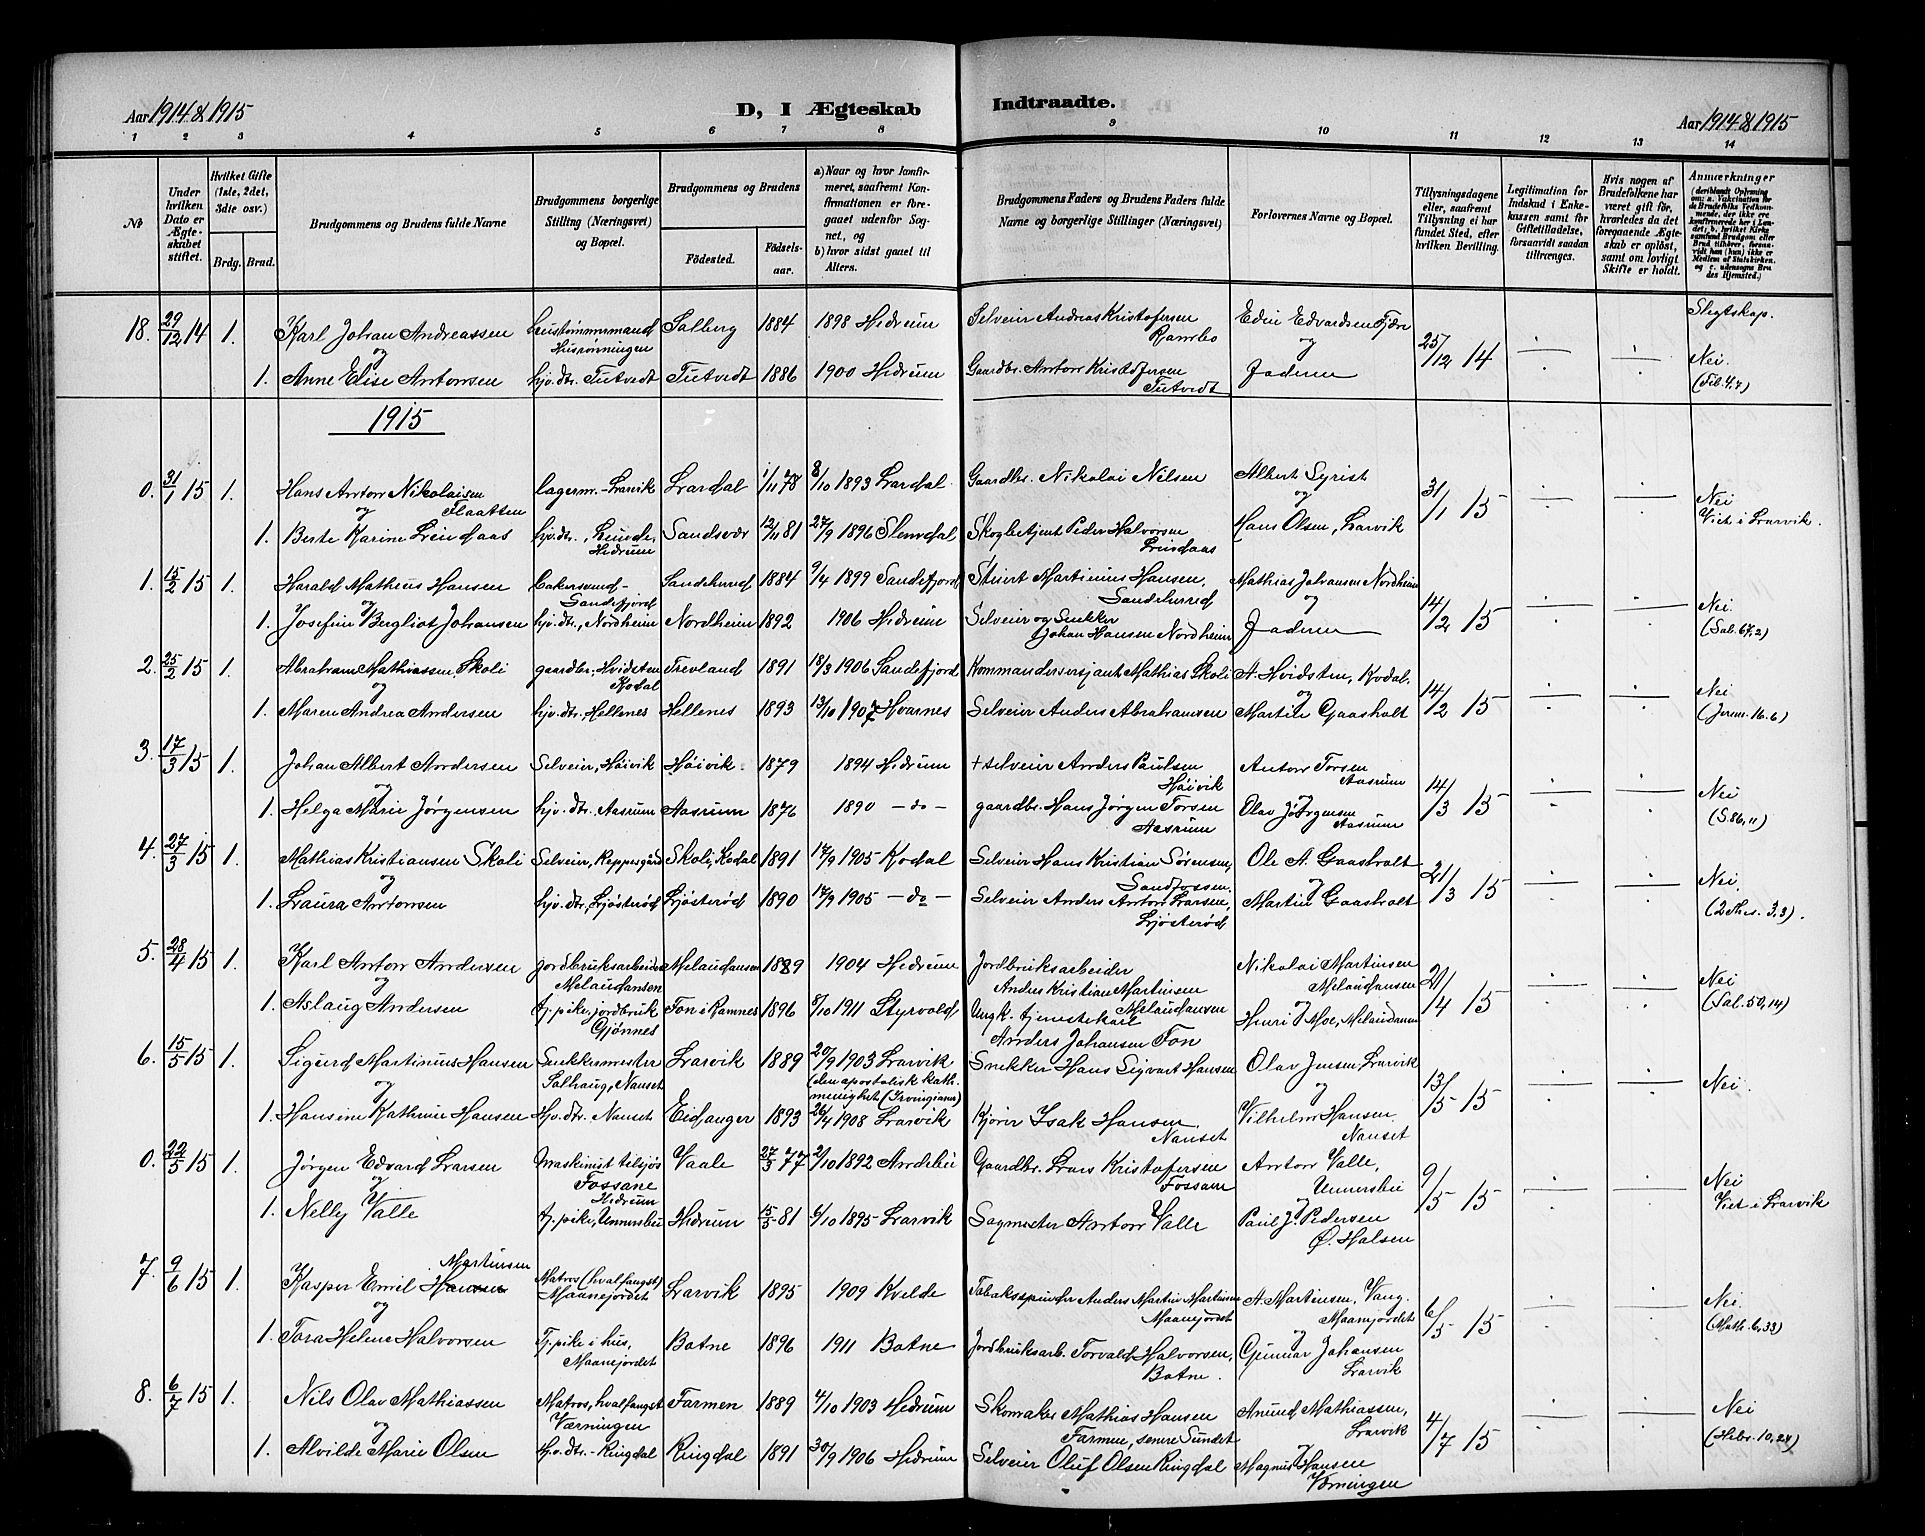 Aar 1914 & 1915
D, I Ægteskab Indtraadte.
Aar 1914 & 1915
1 2 3 4 5 6 7 8 9 10 11 12 13 14
№
Under hvilken Dato er Ægteskabet stiftet.
Hvilket Gifte (1ste, 2det, 3die osv.)
Brdg. Brud.
Brudgommens og Brudens fulde Navne
Brudgommens borgerlige Stilling (Næringsvei) og Bopæl.
Brudgommens og Brudens
Födested. Födselsaar.
a) Naar og hvor konfirmeret, saafremt Konfirmationen er foregaaet udenför Sognet, og
b) hvor sidst gaaet til Alters.
Brudgommens Faders og Brudens Faders fulde Navne og borgerlige Stillinger (Næringsvei)
Forlovernes Navne og Bopæl.
Tillysningsdagene eller, saafremt Tillysning ei har fundet Sted, efter hvilken Bevilling.
Legitimation for Indskud i Enkekassen samt for Giftetilladelse, forsaavidt saadan tiltrænges.
Hvis nogen af Brudefolkene har været gift för, hvorledes da det foregaaende Ægteskab er oplöst, samt om lovligt Skifte er holdt.
Anmærkninger
18. 29/12 14 1. Karl Johan Andreassen Solberg 1884 1898 Hedrum Selveier Andreas Kristofersen Edin Edvardsen Fjære Slegtskap.
og Rambo og 25/12 14 Nei
1. Anne Elise Antonsen hjv. dtr. Tutvedt Tutvedt 1886 1900 Hedrum Gaardbr. Anton Kristofersen Faderen
Tutvedt
1915
0. 31/1 15 1. Hans Anton Nikolaisen lagerm. - Larvik Lardal 1/11 78 8/10 1893 Lardal Gaardbr. Nikolai Nilsen Albert Syrist
og Flaatten og 31/1 15 Nei
1. Berte Karine Lindaas hjv. dtr., Lunde, Sandsvær 12/11 81 27/9 1896 Slemdal Skogbetjent Peder Halvorsen Hans Olsen, Larvik Viet i Larvik.
Hedrum Lindaas
1. 15/2 15 1. Harald Matheus Hansen Sandeherred 1884 9/4 1899 Sandefjord Stuert Martinius Hansen, Mathias Johansen Nordheim
og Sandefjord Sandeherred og 14/2 15 Nei
1. Josefine Bergliot Johansen hjv. dtr., Nordheim Nordheim 1892 1906 Hedrum Selveier og Snekker Faderen (Sal. 67,2)
Johan Hansen Nordheim
2. 25/2 15 1. Abraham Mathiassen Skoli gaardbr., Hvidsten Trevland 1891 18/3 1906 Sandefjord Kommandersersjant Mathias Skoli A. Hvidsten, Kodal.
og Kodal og 14/2 15 Nei
1. Maren Andrea Andersen hjv. dtr. Hellenes Hellenes 1893 13/10 1907 Hvarnes Selveier Anders Abrahamsen Martin Gaasholt (Jerem. 16.6)
3. 17/3 15 1. Johan Albert Andersen Selveier, Høivik Høivik 1879 1894 Hedrum + selveier Anders Paulsen Anton Torsen
og Høivik Aasrum 14/3 15 Nei
1. Helga Marie Jørgensen hjv. dtr. Aasrum Aasrum 1876 1890 - do - gaardbr. Hans Jørgen Torsen Olav Jørgensen (S. 86, 11)
Aasrum Aasrum
4. 27/3 15 1. Mathias Kristiansen Skoli Selveier, Reppesgård Skoli, Kodal 1891 17/9 1905 Kodal Selveier Hans Kristian Sørensen, Ole A. Gaasholt
og Sandfossen. og 21/3 15 Nei.
1. Laura Antonsen hjv. dtr., Ljøsterød Ljøsterød 1890 17/9 1905 - do - Selveier Anders Anton Larsen, Martin Gaasholt (2 Thes. 3,3).
Ljøsterød
5. 28/4 15 1. Karl Anton Andersen jordbruksarbeider Melaudansen 1889 1904 Hedrum Jordbruksarbeider Nikolai Martinsen
og Melaudansen Anders Kristian Martinsen Melaudansen 21/4 15 Nei
1. Aslaug Andersen tj. pike, jordbruk Fon i Ramnes 1896 8/10 1911 Styrvold Ungk. tjenestekarl Melaudansen Henri J Moe, Melaudansen (Sal. 50,14)
Gjønnes Anders Johansen Fon
6. 15/5 15 1. Sigurd Martinius Hansen Snekkermester Larvik 1889 20/9 1903 Larvik Snekker Hans Sigvart Hansen Olav Jensen, Larvik
og Solhaug, Nanset (den apostolisk kath. menighet (Irvingianer) og 13/5 15 Nei.
1. Hansine Kathrine Hansen Hjv. dtr. Nanset Eidanger 1893 26/4 1908 Larvik Kjører Isak Hansen Vilhelm Hansen
Nanset Nanset
0. 22/5 15 1. Jørgen Edvard Larsen Maskinist tilsjøs Vaale 27/3 77 2/10 1892 Andebu Gaardbr. Lars Kristofersen Anton Valle,
og Fossane Fossane Unnersbu 9/5 15 Nei
Hedrum og Viet i Larvik
1. Nelly Valle tj. pike, Unnersbu Hedrum 15/5 81 6/10 1895 Larvik Sagmester Anton Valle Paul J. Pedersen
Ø. Halsen
7. 9/6 15 1. Kasper Emil Hansen Martinsen Matros (hvalfangst) Larvik 1895 1909 Kvelde Tobaksspinder Anders Martin Martinsen A. Martinsen, Vang.
og Maanejordet Maanejordet Maanejordet 6/5 15 Nei.
1. Tora Helene Halvorsen Tj. pike i hus, Botne 1896 1911 Botne Jordbruksarb. Torvald Halvorsen, Gunnar Johansen (Math. 6,33)
Maanejordet Botne. Larvik
8. 6/7 15 1. Nils Olav Mathiassen Matros, hvalfangst Farmen 1889 4/10 1903 Hedrum Skomaker Mathias Hansen Anund Mathiassen,
og Værningen Farmen, senere Sundet Larvik 4/7 15 Nei
1. Alvilde Marie Olsen Hjv. dtr. - Ringdal Ringdal 1891 30/9 1906 Hedrum Selveier Oluf Olsen Ringdal Magnus Hansen (Hebr. 10,24)
Værningen